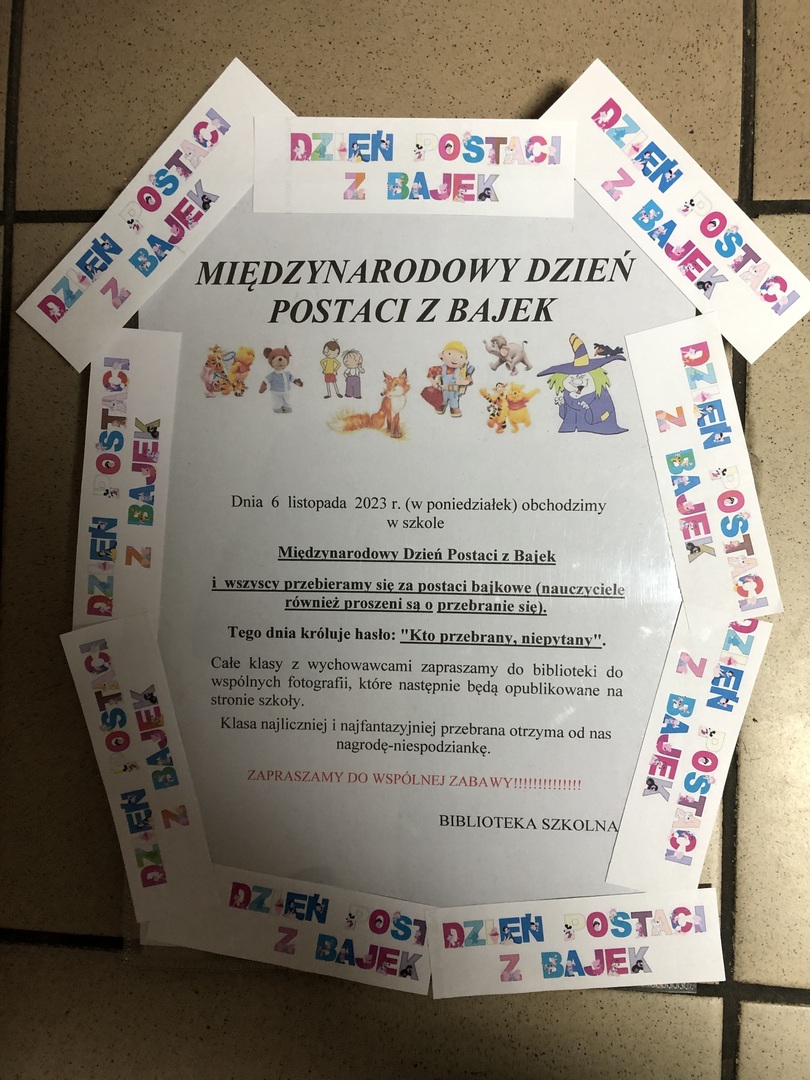 DZIEŃ POSTACI
Z BAJEK
DZIEŃ POSTACI
Z BAJEK
DZIEŃ POSTACI
Z BAJEK
MIĘDZYNARODOWY DZIEŃ
POSTACI Z BAJEK
DZIEŃ POSTACI
Z BAJEK
DZIEŃ POSTACI
Z BAJEK
Dnia 6 listopada 2023 r. (w poniedziałek) obchodzimy
w szkole
Międzynarodowy Dzień Postaci z Bajek
i wszyscy przebieramy się za postaci bajkowe (nauczyciele
również proszeni są o przebranie się).
Tego dnia króluje hasło: "Kto przebrany, niepytany".
Całe klasy z wychowawcami zapraszamy do biblioteki do
wspólnych fotografii, które następnie będą opublikowane na
stronie szkoły.
Klasa najliczniej i najfantazyjniej przebrana otrzyma od nas
nagrodę-niespodziankę.
ZAPRASZAMY DO WSPÓLNEJ ZABAWY!!!!!!!!!!!!!!
BIBLIOTEKA SZKOLNA
DZIEŃ POSTACI
Z BAJEK
DZIEŃ POSTACI
Z BAJEK
DZIEŃ POST
Z BAJEK
DZIEŃ POSTACI
Z BAJEK